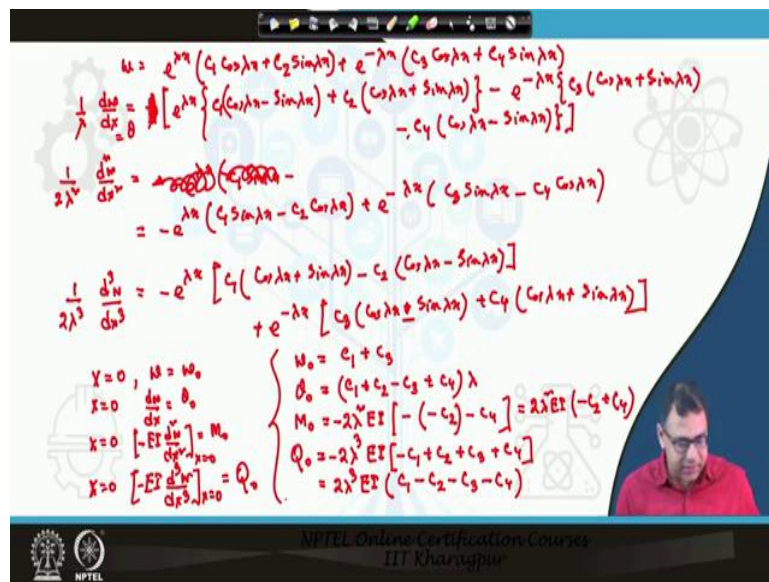 w = e^{λx} (C₁ Cos λx + C₂ Sin λx) + e^{-λx} (C₃ Cos λx + C₄ Sin λx)
1/λ dw/dx = [e^{λx} { C₁(Cos λx - Sin λx) + C₂ (Cos λx + Sin λx) } - e^{-λx} { C₃ (Cos λx + Sin λx)
= θ
- C₄ (Cos λx - Sin λx) }]
1/2λ² d²w/dx² =
= -e^{λx} (C₁ Sin λx - C₂ Cos λx) + e^{-λx} (C₃ Sin λx - C₄ Cos λx)
1/2λ³ d³w/dx³ = -e^{λx} [C₁ (Cos λx + Sin λx) - C₂ (Cos λx - Sin λx)]
+ e^{-λx} [C₃ (Cos λx - Sin λx) + C₄ (Cos λx + Sin λx)]
x=0, w = w₀
x=0 dw/dx = θ₀
x=0 [-EI d²w/dx²]_{x=0} = M₀
x=0 [-EI d³w/dx³]_{x=0} = Q₀
w₀ = C₁ + C₃
θ₀ = (C₁ + C₂ - C₃ + C₄) λ
M₀ = -2λ² EI [- (-C₂) - C₄] = 2λ² EI (-C₂ + C₄)
Q₀ = -2λ³ EI [-C₁ + C₂ + C₃ + C₄]
= 2λ³ EI (C₁ - C₂ - C₃ - C₄)
NPTEL Online Certification Courses
IIT Kharagpur
NPTEL